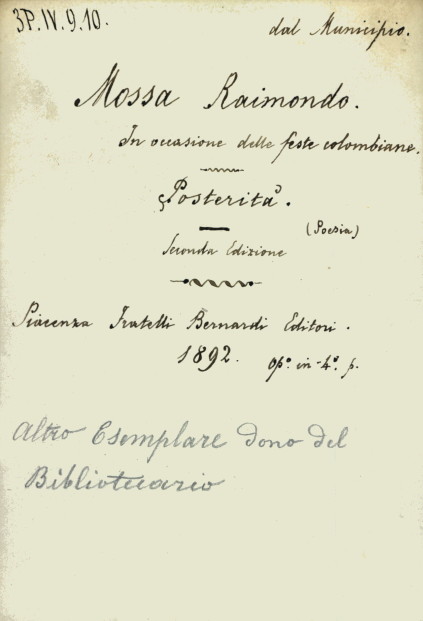 3P.IV.9.10.
dal Municipio.
Mossa Raimondo.
In occasione delle feste colombiane.
Posterità.
(Poesia)
Seconda Edizione
Piacenza Fratelli Bernardi Editori.
1892. opº. in-4º. p.
Altro Esemplare dono del
Bibliotecario